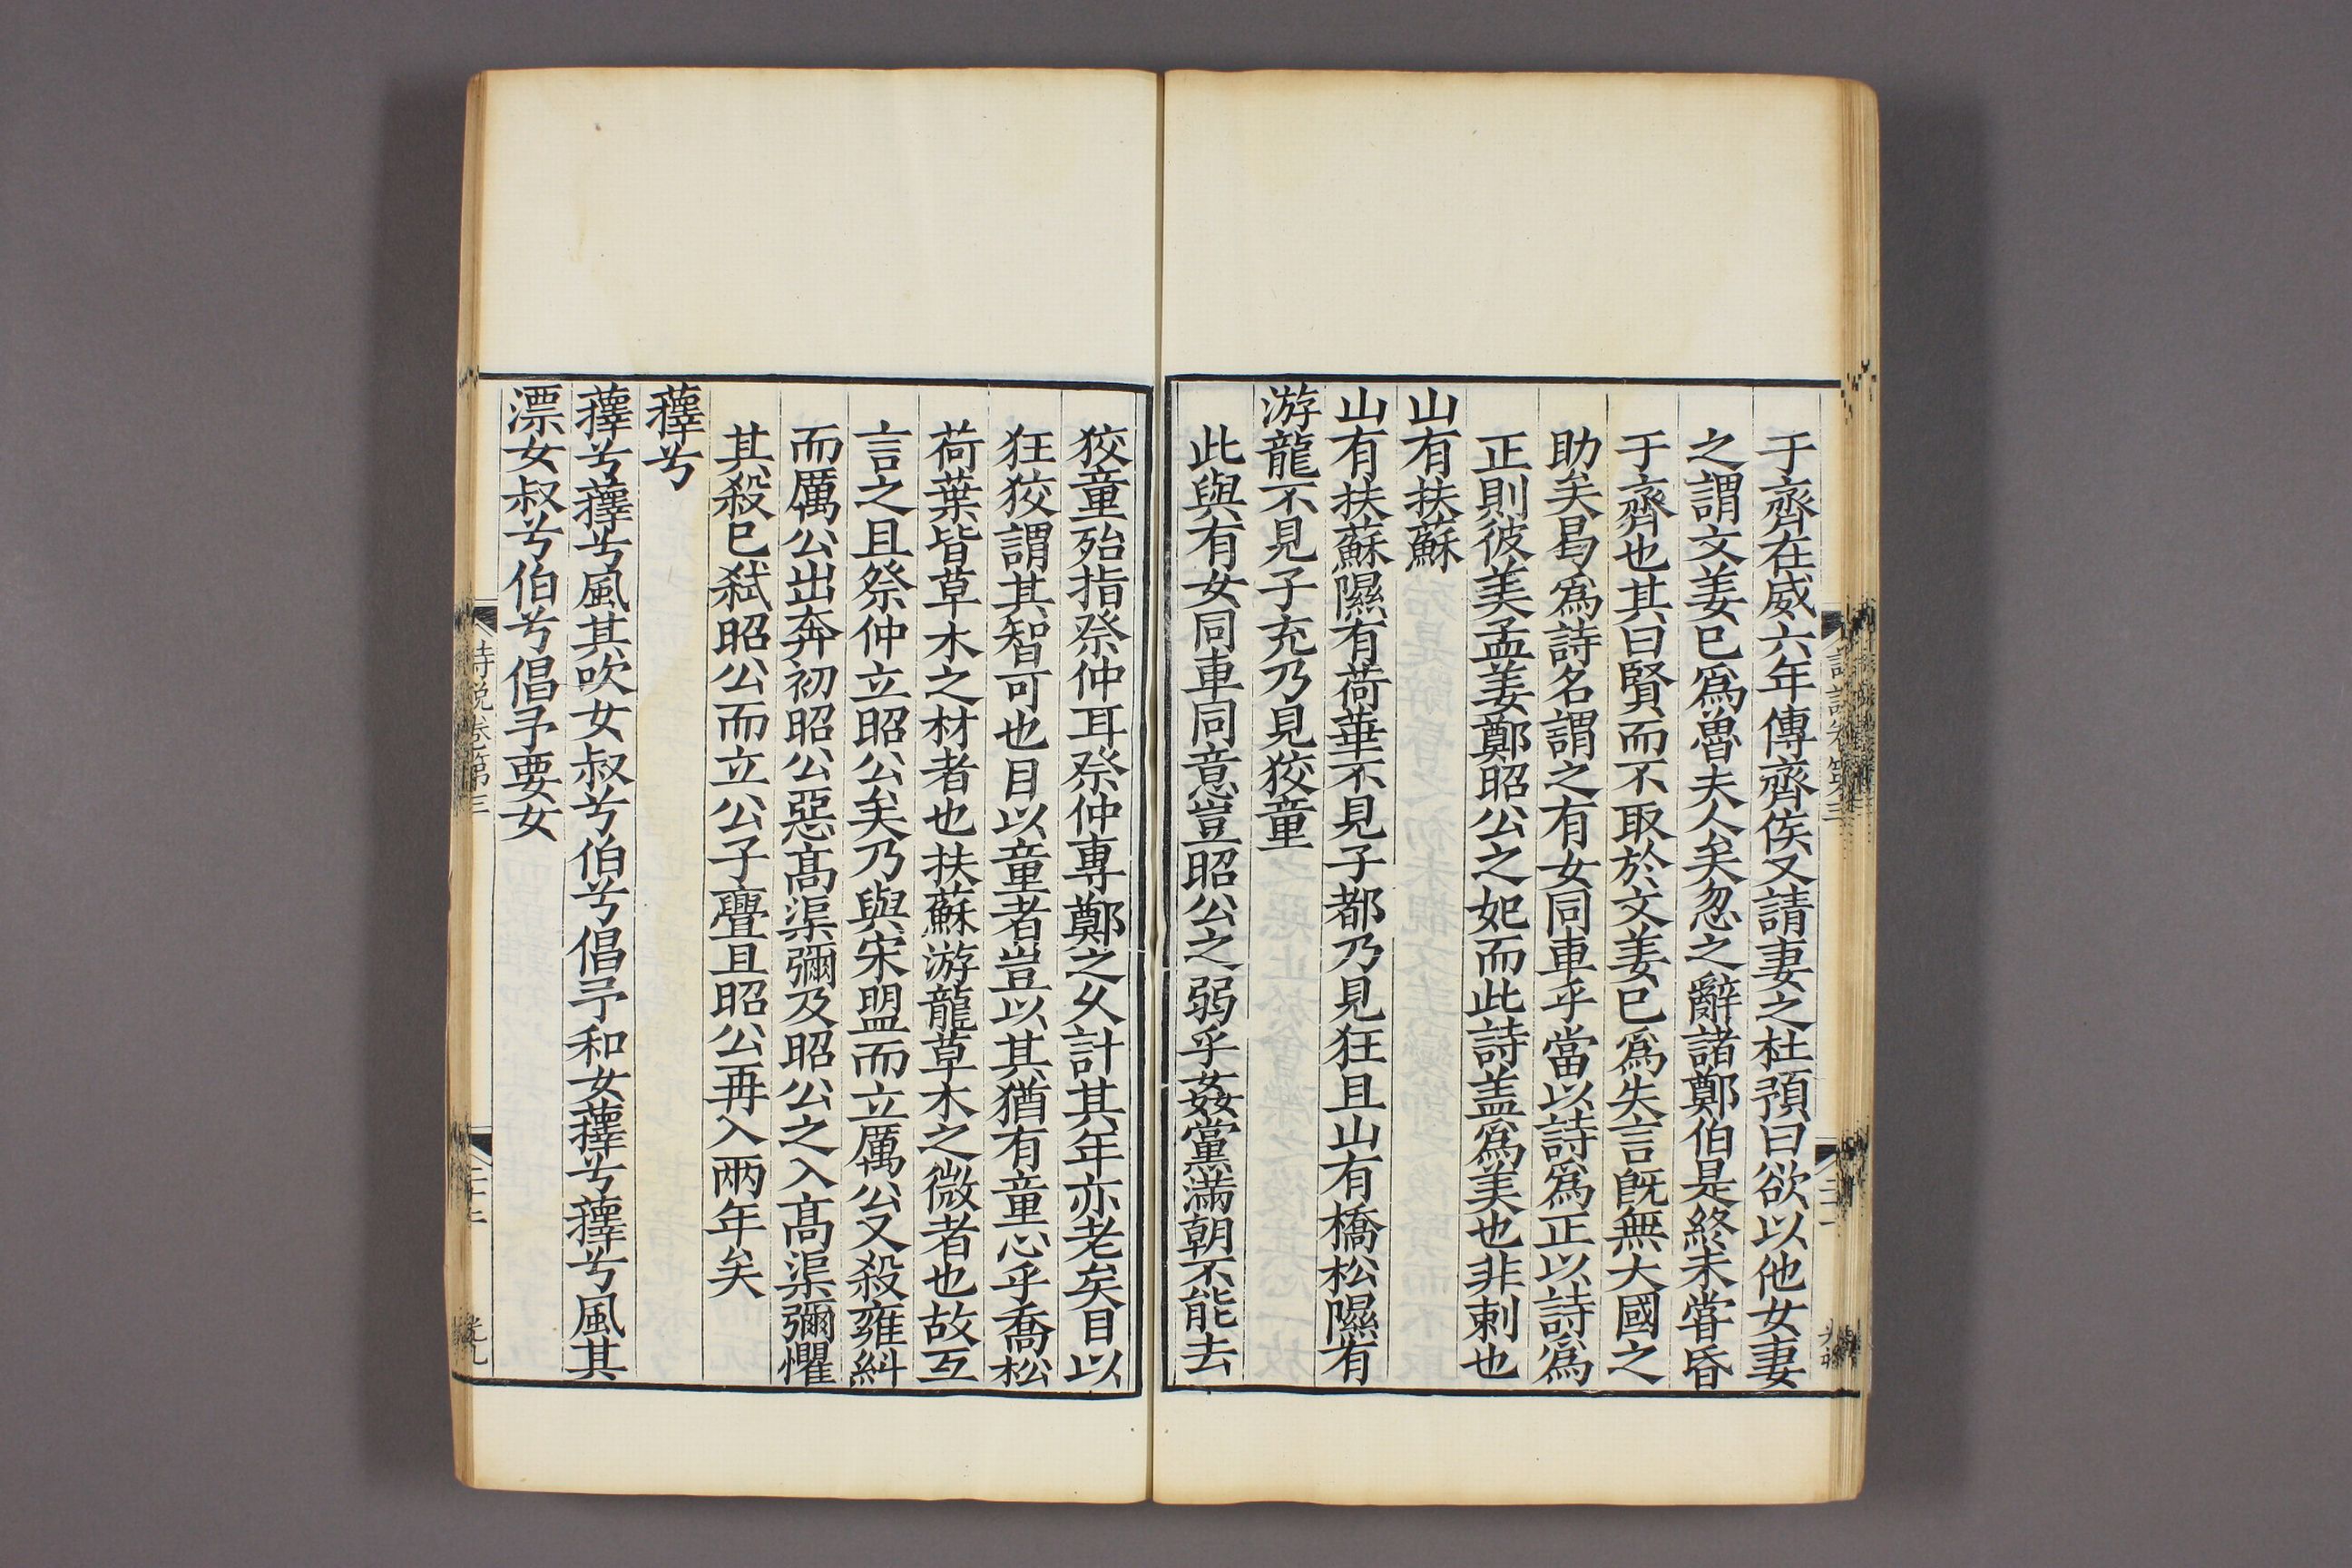 于齊在威六年傳齊侯又請妻之杜預曰欲以他女妻
之謂文姜已爲魯夫人矣忽之辭諸鄭伯是終未甞昏
于齊也其曰賢而不取於文姜已爲失言旣無大國之
助矣曷爲詩名謂之有女同車乎當以詩爲正以詩爲
正則彼美孟姜鄭昭公之妃而此詩盖爲美也非刺也
山有扶蘇
山有扶蘇隰有荷華不見子都乃見狂且山有橋松隰有
游龍不見子充乃見狡童
此與有女同車同意豈昭公之弱乎姦黨滿朝不能去
狡童殆指祭仲耳祭仲專鄭之久計其年亦老矣目以
狂狡謂其智可也目以童者豈以其猶有童心乎喬松
荷葉皆草木之材者也扶蘇游龍草木之微者也故互
言之且祭仲立昭公矣乃與宋盟而立厲公又殺雍糾
而厲公出奔初昭公惡髙渠彌及昭公之入髙渠彌懼
其殺已弑昭公而立公子亹且昭公再入兩年矣
蘀兮
蘀兮蘀兮風其吹女叔兮伯兮倡予和女蘀兮蘀兮風其
漂女叔兮伯兮倡予要女
詩説卷第三